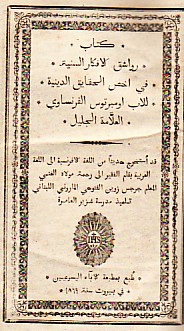 كتاب
رواشق الافكار السنية
في اخص الحقايق الدينية
للاب اومبرتوس الفرنساوي
العلامة الجليل
قد استخرج حديثا من اللغة الافرنسية الى اللغة
العربية بقلم الفقير الى رحمة مولاه الغني
المعلم جرجس زوين الفتوحي الماروني اللبناني
تلميذ مدرسة غزير العامرة
IHS
طبع بمطبعة الاباء اليسوعيين
في بيروت سنة